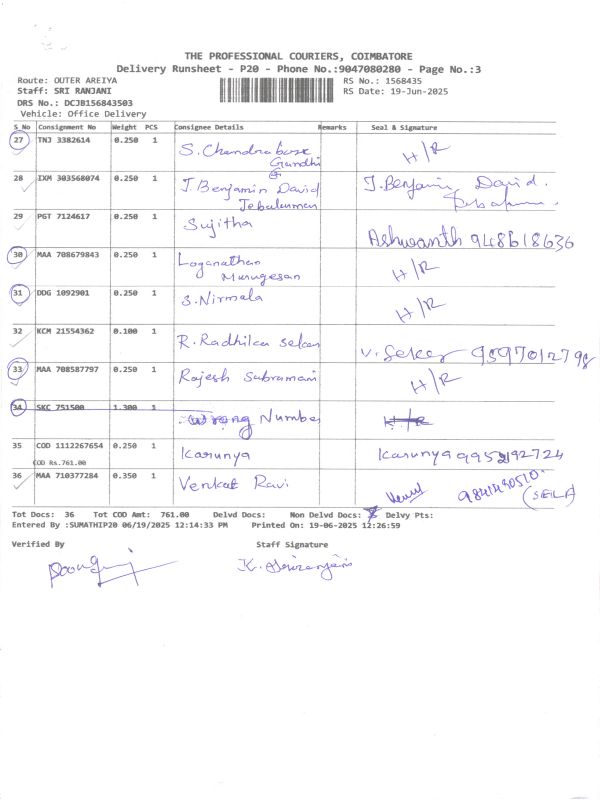 THE PROFESSIONAL COURIERS, COIMBATORE
Delivery Runsheet - P20 - Phone No.:9047080280 - Page No.:3
Route: OUTER AREIYA RS No.: 1568435
Staff: SRI RANJANI RS Date: 19-Jun-2025
DRS No.: DCJB156843503
Vehicle: Office Delivery
S No Consignment No Weight PCS Consignee Details Remarks Seal & Signature
27 TNJ 3382614 0.250 1 S. Chandrabose H/R
Gandhi
28 IXM 303568074 0.250 1 J. Benjamin David J. Benjamin David.
Jebakumar
29 PGT 7124617 0.250 1 Sujitha
Ashwanth 948618636
30 MAA 708679843 0.250 1 Loganathan H/R
Murugesan
31 DDG 1092901 0.250 1 S. Nirmala H/R
32 KCM 21554362 0.100 1 R. Radhika Sekar
V. Sekar 9597012798
33 MAA 708587797 0.250 1 Rajesh Subramani H/R
34 SKC 751500 1.300 1 Wrong Number H/R
35 COD 1112267654 0.250 1 Karunya Karunya 9952192724
COD Rs.761.00
36 MAA 710377284 0.350 1 Venkat Ravi
(SELF)
Tot Docs: 36 Tot COD Amt: 761.00 Delvd Docs: Non Delvd Docs: Delvy Pts:
Entered By :SUMATHIP20 06/19/2025 12:14:33 PM Printed On: 19-06-2025 12:26:59
Verified By Staff Signature
K. Sriranjani